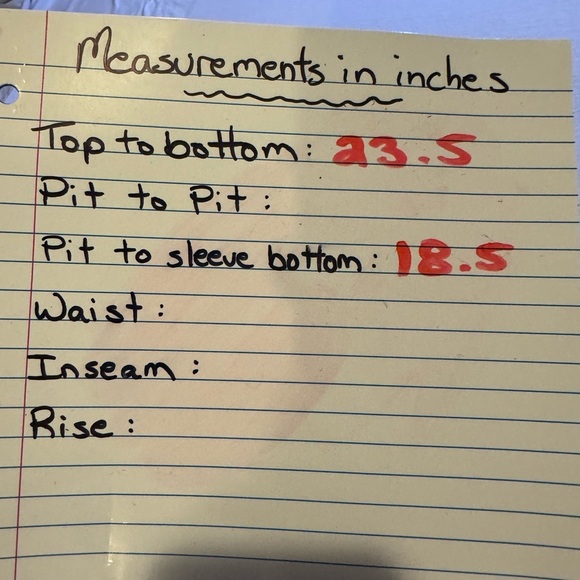 Measurements in inches
Top to bottom: 23.5
Pit to Pit:
Pit to sleeve bottom: 18.5
Waist:
Inseam:
Rise: